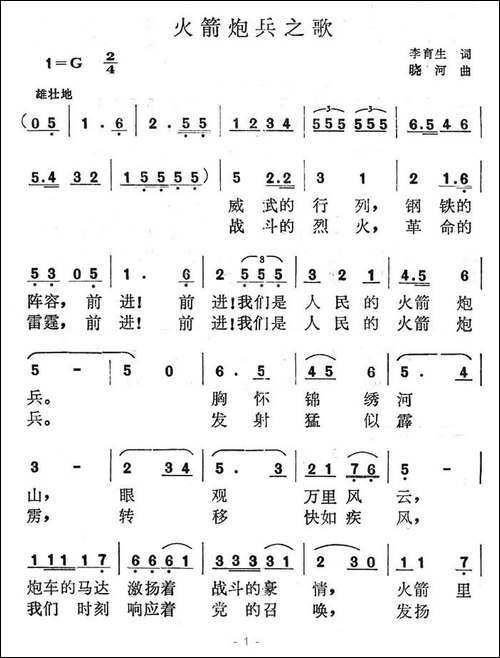 火箭炮兵之歌
1=G 2/4
李育生 词
晓河 曲
雄壮地
(05 | 1. 6 | 2. 55 | 1234 | 555 555 | 6.5 4 6 |
5.4 32 | 15555) | 5 2.2 | 3 1 | 2 1.6 |
威 武的 行 列, 钢 铁的
战 斗的 烈 火, 革 命的
53 05 | 1. 6 | 2 555 | 3 2 1 | 4.5 6 |
阵容, 前 进! 前 进!我们是 人 民 的 火箭 炮
雷霆, 前 进! 前 进!我们是 人 民 的 火箭 炮
5 - | 5 0 | 6. 5 | 45 6 | 5. 4 |
兵。 胸 怀 锦 绣 河
兵。 发 射 猛 似 霹
3 - | 2 34 | 5. 3 | 21 76 | 5 - |
山, 眼 观 万里 风 云,
雳, 转 移 快如 疾 风,
111 17 | 6661 | 3331 | 2 30 | 11 7 |
炮车的 马达 激扬着 战斗的豪 情, 火箭 里
我们 时刻 响应着 党 的召 唤, 发扬
- 1 -